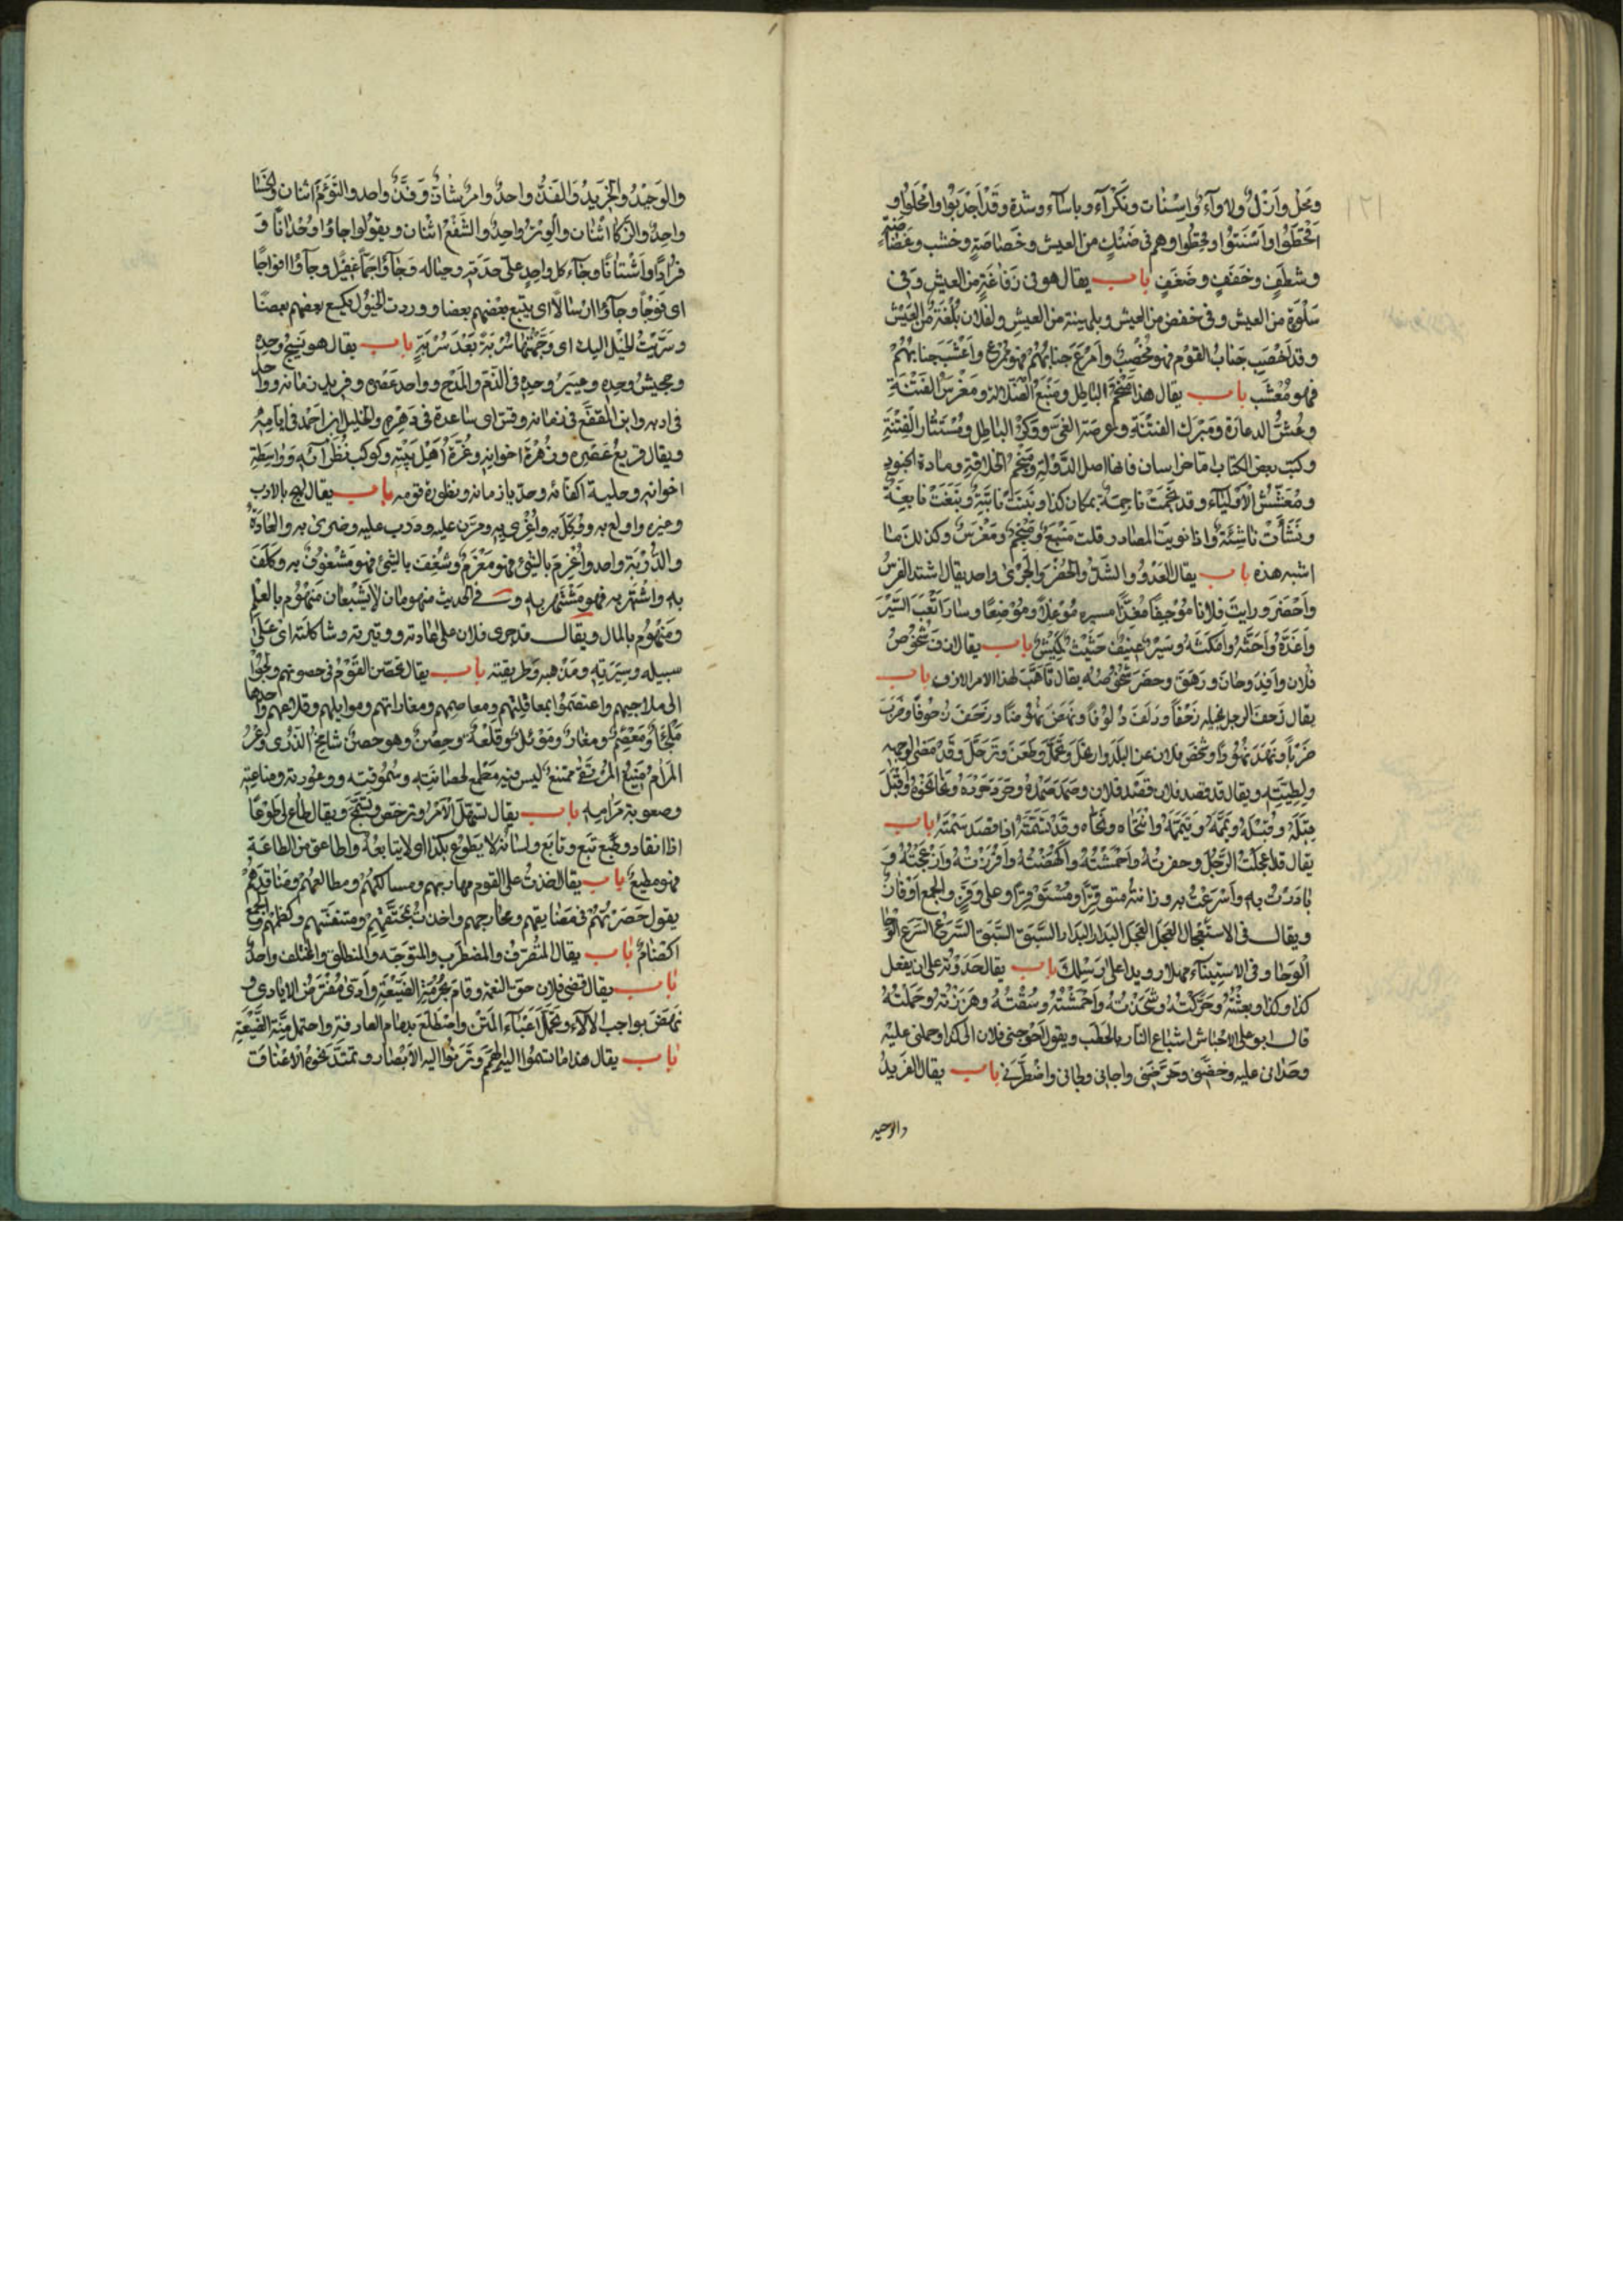 ١٢١
ومحل وازل ولاواء واسنات ونكراء وباساء وشدة وقد اجدبوا وامحلوا و
اقحطوا واسنتوا وقحطوا وهم فى ضنك من العيش وخصاصة وخشب وغضاضة
وشظف وخفف وضفف باب يقال هو فى رفاغة من العيش وفى
سلوة من العيش وفى خفض من العيش وبلهينة من العيش ولفلان بلغة من العيش
وقد اخصب جناب القوم فهو مخصب وامرع جنابهم فهو ممرع واعشب جنابهم
فهو معشب باب يقال هذا منجم الباطل ومنبع الضلالة ومغرس الفتنة
وعش الدعارة ومبرك الفتنة وعرصة الغى ووكر الباطل ومستثار الفتنة
وكتب بعض الكتاب اما خراسان فانها اصل الدولة ومنجم الخلافة ومادة الجنود
ومعشش الاولياء وقد نجمت ناجمة بمكان كذا ونبتت نابتة ونبغت نابغة
ونشأت ناشئة واذا نويت المصادر قلت منبع ومنجم ومغرس وكذلك ما
اشبه هذه باب يقال العدو والشد والحضر والجرى واحد يقال اشتد الفرس
واحضر ورايت فلانا موجفا مغذا مسيره موغلا وموضعا وسار اتعب السير
واغذه واحثه وامكثه وسير عنيف حثيث كميش باب يقال ان ف شخوص
فلان وافد وحان ورهق وحضر شخوصه يقال تاهب لهذا الامر الازف باب
يقال زحف الرجل بخيله زحفا ودلف دلوفا ونهض نهوضا وزحف زحوفا وضرب
ضربا ونهد نهودا وشخص فلان عن البلد وارتحل وتحمل وظعن وترحل وقد مضى لوجهه
ولطيته ويقال قد قصد فلان قصد فلان وصمد صمده وحرد حرده ونحا نحوه واقبل
قبله وقبله وتممه وتيممه وانتحاه ونحاه وقد سمته اذا قصد سمته باب
يقال قد اعجلت الرجل وحفزته واحمشته واكمشته وافززته وازعجته و
بادرت به واسرعت به وزانته متوفزا ومستوفزا وعلى وفز والجمع اوفاز
ويقال فى الاستعجال العجل العجل البدار البدار السبق السبق السرع السرع الوحا
الوحا وفى الاستيناء مهلا رويدا على رسلك باب يقال حدوته على ان يفعل
كذا وكذا وبعثته وحركته وشحذته واحمشته وسقته وهززته وحملته
قال ابو على الاحماش اشباع النار بالحطب ويقول احوجنى فلان الى كذا وحملنى عليه
وحدانى عليه وحضنى وحرضنى واجانى والجانى واضطرنى باب يقال الفريد
والوحيد
والوحيد والحريد والفذ واحد وامر شات وفذ واحد والتوئم اثنان والخسا
واحد والزكا اثنان والوتر واحد والشفع اثنان ويقولوا جاؤا وحدانا و
فرادا واشتاتا وجاء كل واحد على حدته وحياله وجاؤا جما غفيرا وجاؤا افواجا
اى فوجا وجاؤا ارسالا اى يتبع بعضهم بعضا ووردت الخيول يكسع بعضهم بعضا
وسربت الخيل اليك اى وجهتها سربة بعد سربة باب يقال هو نسيج وحده
وجحيش وحده وعيير وحده فى الذم والمدح وواحد عصره وفريد زمانه وواحد
فى ادبه وابن المقفع فى زمانه وقس اى ساعدة فى دهره والخليل ابن احمد فى ايامه
ويقال قريع عصره وزهرة اخوانه وغرة اهل بيته وكوكب نظرائه وواسطة
اخوانه وحلية اكفائه وحديا زمانه ونظورة قومه باب يقال لهج بالادب
وغيره واولع به ووكل به واغرى به ومرن عليه ودرب عليه وضرى به والعادة
والدربة واحد واغرم بالشئ فهو مغرم وشغف بالشئ فهو مشغوف به وكلف
به واشتهر به فهو مشتهر به و فى الحديث منهومان لا يشبعان منهوم بالعلم
ومنهوم بالمال ويقال قد جرى فلان على عادته ووتيرته وشاكلته اى على
سبيله وسيرته ومذهبه وطريقته باب يقال تحصن القوم فى حصونهم ولجوا
الى ملاجيهم واعتصموا بمعاقلهم ومعاصمهم ومغاراتهم وموايلهم وقلاعهم واحدها
ملجأ ومعصم ومغار وموئل وقلعة وحصن وهو حصن شامخ الذرى وعر
المرام منيع المرتقى ممتنع ليس فيه مطمع لحصانته وسموقته ووعورته ومناعته
وصعوبة مرامه باب يقال تسهل الامر وترخص وتسمح ويقال طاع لى طوعا
اذا انقاد ونجع تبع وتابع ولسانه لا يطوع بكذا اى لا يتابعه واطاعنى من الطاعة
فهو مطيع باب يقال اخذت على القوم مهاربهم ومسالكهم ومطالعهم ومنافذهم
يقول حصرتهم فى مضايقهم ومخارجهم واخذت بمختنقهم ومتنفسهم وكظمهم والجمع
اكظام باب يقال المتفرق والمضطرب والمتوجه والمنطلق والمختلف واحد
باب يقال قضى فلان حق النعمة وقام بحرمة الصنيعة وادى مفترض الايادى و
نهض بواجب الالاء وتحمل اعباء المنن واضطلع بدمام العارفة واحتمل منة الصنيعة
باب يقال هذا ما تسموا اليه الهمم وترنوا اليه الابصار وتمتد نحوه الاعناق